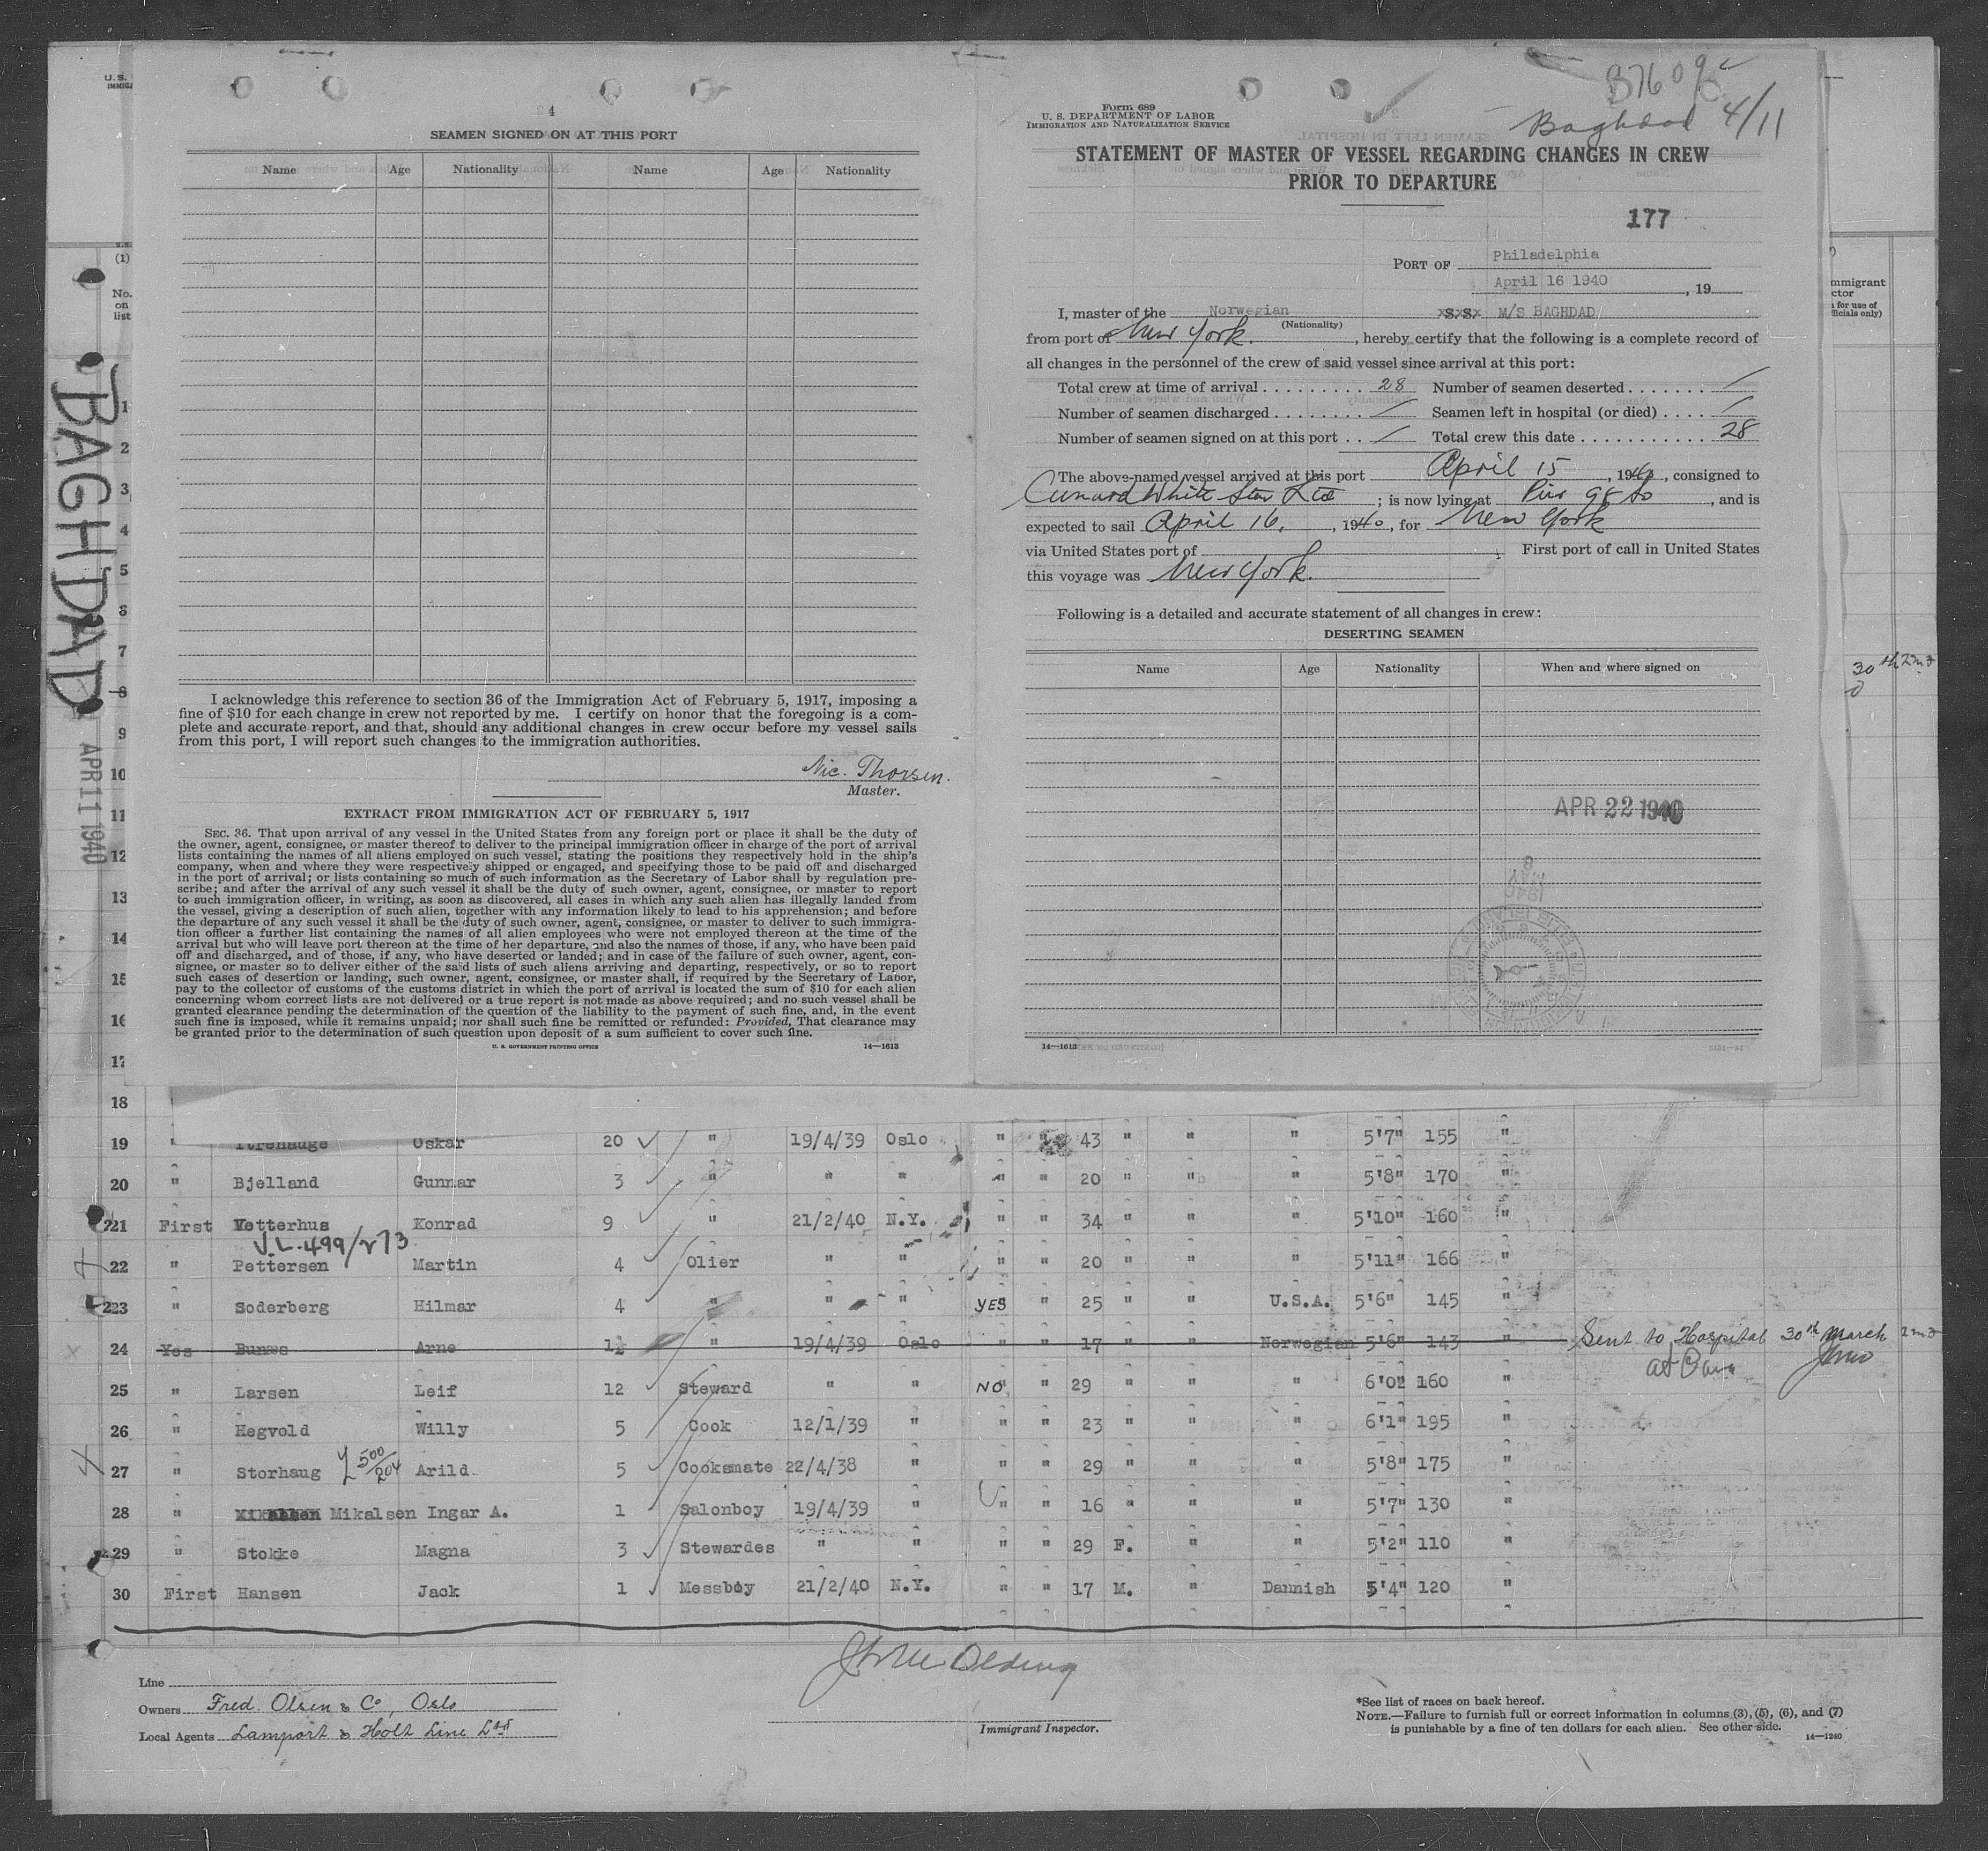 4
SEAMEN SIGNED ON AT THIS PORT
Name Age Nationality Name Age Nationality
I acknowledge this reference to section 36 of the Immigration Act of February 5, 1917, imposing a
fine of $10 for each change in crew not reported by me. I certify on honor that the foregoing is a com-
plete and accurate report, and that, should any additional changes in crew occur before my vessel sails
from this port, I will report such changes to the immigration authorities.
Nic. Thorsen.
Master.
EXTRACT FROM IMMIGRATION ACT OF FEBRUARY 5, 1917
SEC. 36. That upon arrival of any vessel in the United States from any foreign port or place it shall be the duty of
the owner, agent, consignee, or master thereof to deliver to the principal immigration officer in charge of the port of arrival
lists containing the names of all aliens employed on such vessel, stating the positions they respectively hold in the ship's
company, when and where they were respectively shipped or engaged, and specifying those to be paid off and discharged
in the port of arrival; or lists containing so much of such information as the Secretary of Labor shall by regulation pre-
scribe; and after the arrival of any such vessel it shall be the duty of such owner, agent, consignee, or master to report
to such immigration officer, in writing, as soon as discovered, all cases in which any such alien has illegally landed from
the vessel, giving a description of such alien, together with any information likely to lead to his apprehension; and before
the departure of any such vessel it shall be the duty of such owner, agent, consignee, or master to deliver to such immigra-
tion officer a further list containing the names of all alien employees who were not employed thereon at the time of the
arrival but who will leave port thereon at the time of her departure, and also the names of those, if any, who have been paid
off and discharged, and of those, if any, who have deserted or landed; and in case of the failure of such owner, agent, con-
signee, or master so to deliver either of the said lists of such aliens arriving and departing, respectively, or so to report
such cases of desertion or landing, such owner, agent, consignee, or master shall, if required by the Secretary of Labor,
pay to the collector of customs of the customs district in which the port of arrival is located the sum of $10 for each alien
concerning whom correct lists are not delivered or a true report is not made as above required; and no such vessel shall be
granted clearance pending the determination of the question of the liability to the payment of such fine, and, in the event
such fine is imposed, while it remains unpaid; nor shall such fine be remitted or refunded: Provided, That clearance may
be granted prior to the determination of such question upon deposit of a sum sufficient to cover such fine.
U. S. GOVERNMENT PRINTING OFFICE 14—1613
Form 689
U. S. DEPARTMENT OF LABOR
IMMIGRATION AND NATURALIZATION SERVICE
Baghdad 4/11
STATEMENT OF MASTER OF VESSEL REGARDING CHANGES IN CREW
PRIOR TO DEPARTURE
177
PORT OF Philadelphia
April 16 1940, 19
I, master of the Norwegian S.S. M/S BAGHDAD
(Nationality)
from port of New York., hereby certify that the following is a complete record of
all changes in the personnel of the crew of said vessel since arrival at this port:
Total crew at time of arrival 28 Number of seamen deserted /
Number of seamen discharged / Seamen left in hospital (or died) /
Number of seamen signed on at this port / Total crew this date 28
The above-named vessel arrived at this port April 15, 1940, consigned to
Cunard White Star Ltd; is now lying at Pier 98 So, and is
expected to sail April 16, 1940, for New York
via United States port of First port of call in United States
this voyage was New York.
Following is a detailed and accurate statement of all changes in crew:
DESERTING SEAMEN
Name Age Nationality When and where signed on
APR 22 1940
14—1613
BAGHDAD
APR 11 1940
U.S.
(1)
No.
on
list
1
2
3
4
5
6
7
8
9
10
11
12
13
14
15
16
17
18
30th
19 " Oskar 20 " 19/4/39 Oslo " " 43 " " " 5'7" 155 "
20 " Bjelland Gunnar 3 " " " " " 20 " " " 5'8" 170 "
21 First Vetterhus Konrad 9 " 21/2/40 N.Y. " " 34 " " " 5'10" 160 "
V.L. 499/273
22 " Pettersen Martin 4 Olier " " " " 20 " " " 5'11" 166 "
23 " Soderberg Hilmar 4 " " " YES " 25 " " U.S.A. 5'6" 145 "
24 Yes Arne " 19/4/39 Oslo 17 " " Norwegian 5'6" 143 " Sent to Hospital 30th March
25 " Larsen Leif 12 Steward " " NO " 29 " " " 6'0" 160 "
26 " Hegvold Willy 5 Cook 12/1/39 " " " 23 " " " 6'1" 195 "
27 " Storhaug 500/204 Arild. 5 Cooksmate 22/4/38 " " " 29 " " " 5'8" 175 "
28 " Mikalsen Ingar A. 1 Salonboy 19/4/39 " " " 16 " " " 5'7" 130 "
29 " Stokke Magna 3 Stewardes " " " " 29 F. " " 5'2" 110 "
30 First Hansen Jack 1 Messboy 21/2/40 N.Y. " " 17 M. " Dannish 5'4" 120 "
Line
Owners Fred. Olsen & Co, Oslo
Local Agents Lamport & Holt Line Ltd
Immigrant Inspector.
*See list of races on back hereof.
NOTE.—Failure to furnish full or correct information in columns (3), (5), (6), and (7)
is punishable by a fine of ten dollars for each alien. See other side.
14—1240